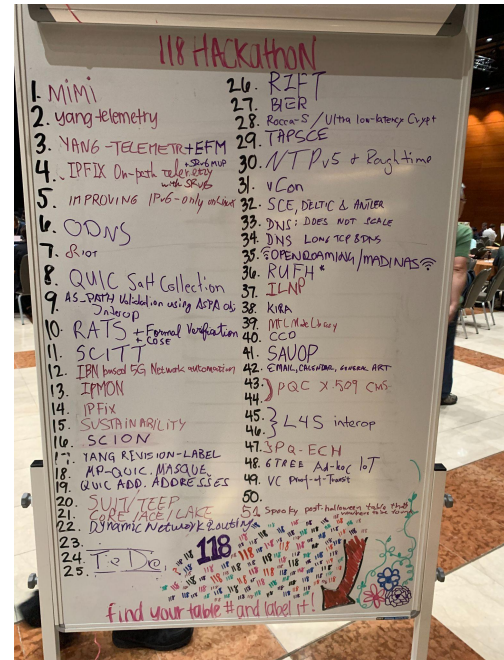 118 HACKathon
1. MiMi
2. yang telemetry
3. YANG-TELEMETRY+EFM
+SRv6 MUP
4. IPFIX On-path telemetry
with SRv6
5. IMPROVING IPv6-only
6. ODNS
7.
8. QUIC Collection
9. AS_PATH Validation using ASPA obj
Interop
10. RATS + Formal Verification
+ COSE
11. SCITT
12. IBN based 5G Network automation
13. IPMON
14. IPFix
15. SUSTAINABILITY
16. SCION
17. YANG REVISION-LABEL
18. MP-QUIC. MASQUE
19. QUIC ADD. ADDRESSES
20. SUIT/TEEP
21. CORE/ACE/LAKE
22. Dynamic Network Routing
23.
24.
25.
26. RIFT
27. BIER
28. Rocca-S / Ultra low-latency Crypt
29. TAPSCE
30. NTPv5 + Roughtime
31. vCon
32. SCE, DELTIC & ANTLER
33. DNS: DOES NOT SCALE
34. DNS LONG TCP &DNS
35. OPENROAMING/MADINAS
36. RUFH*
37. ILNP
38. KIRA
39. Library
40. CCO
41. SAVOP
42. EMAIL, CALENDAR, GENERAL ART
43. PQC X.509 CMS
44.
45. L4S interop
46.
47. PQ-ECH
48. 6TREE Ad-hoc IoT
49. VC Proof-of-Transit
50.
51. Spooky post-halloween table that's
nowhere to be found
118
find your table # and label it!